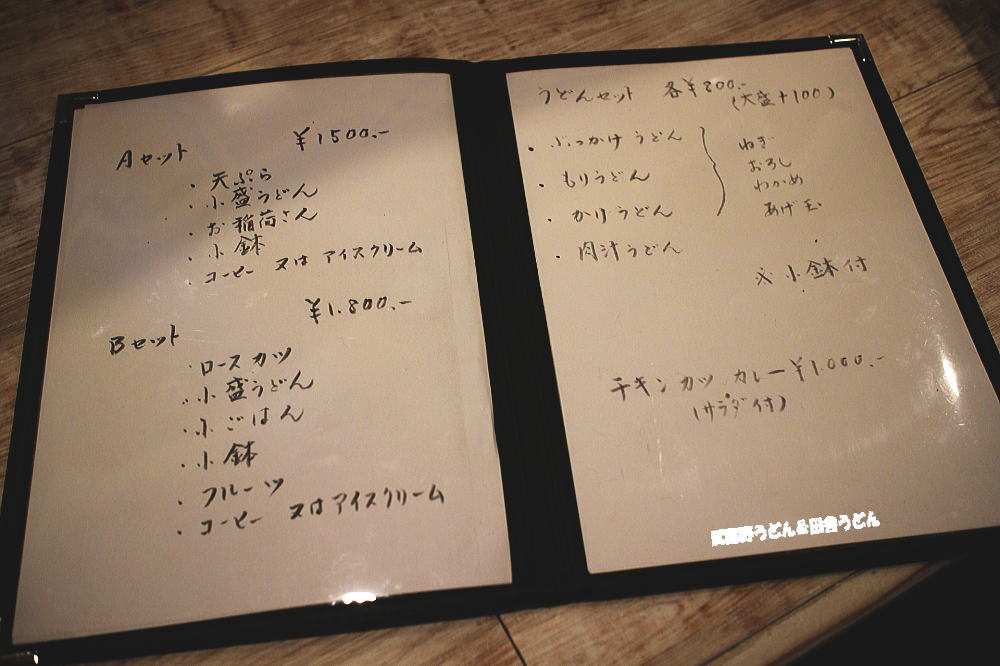 Aセット
¥1500.-
・天ぷら
・小盛うどん
・お稲荷さん
・小鉢
・コーヒー 又は アイスクリーム
¥1.800.-
Bセット
・ロースカツ
・小盛うどん
・小ごはん
・小鉢
・フルーツ
・コーヒー 又はアイスクリーム
うどんセット 各¥800.-
(大盛+100)
・ぶっかけうどん
・もりうどん
・かけうどん
・肉汁うどん
ねぎ
おろし
わかめ
あげ玉
※小鉢付
チキンカツ カレー ¥1.000.-
(サラダ付)
武蔵野うどん&田舎うどん